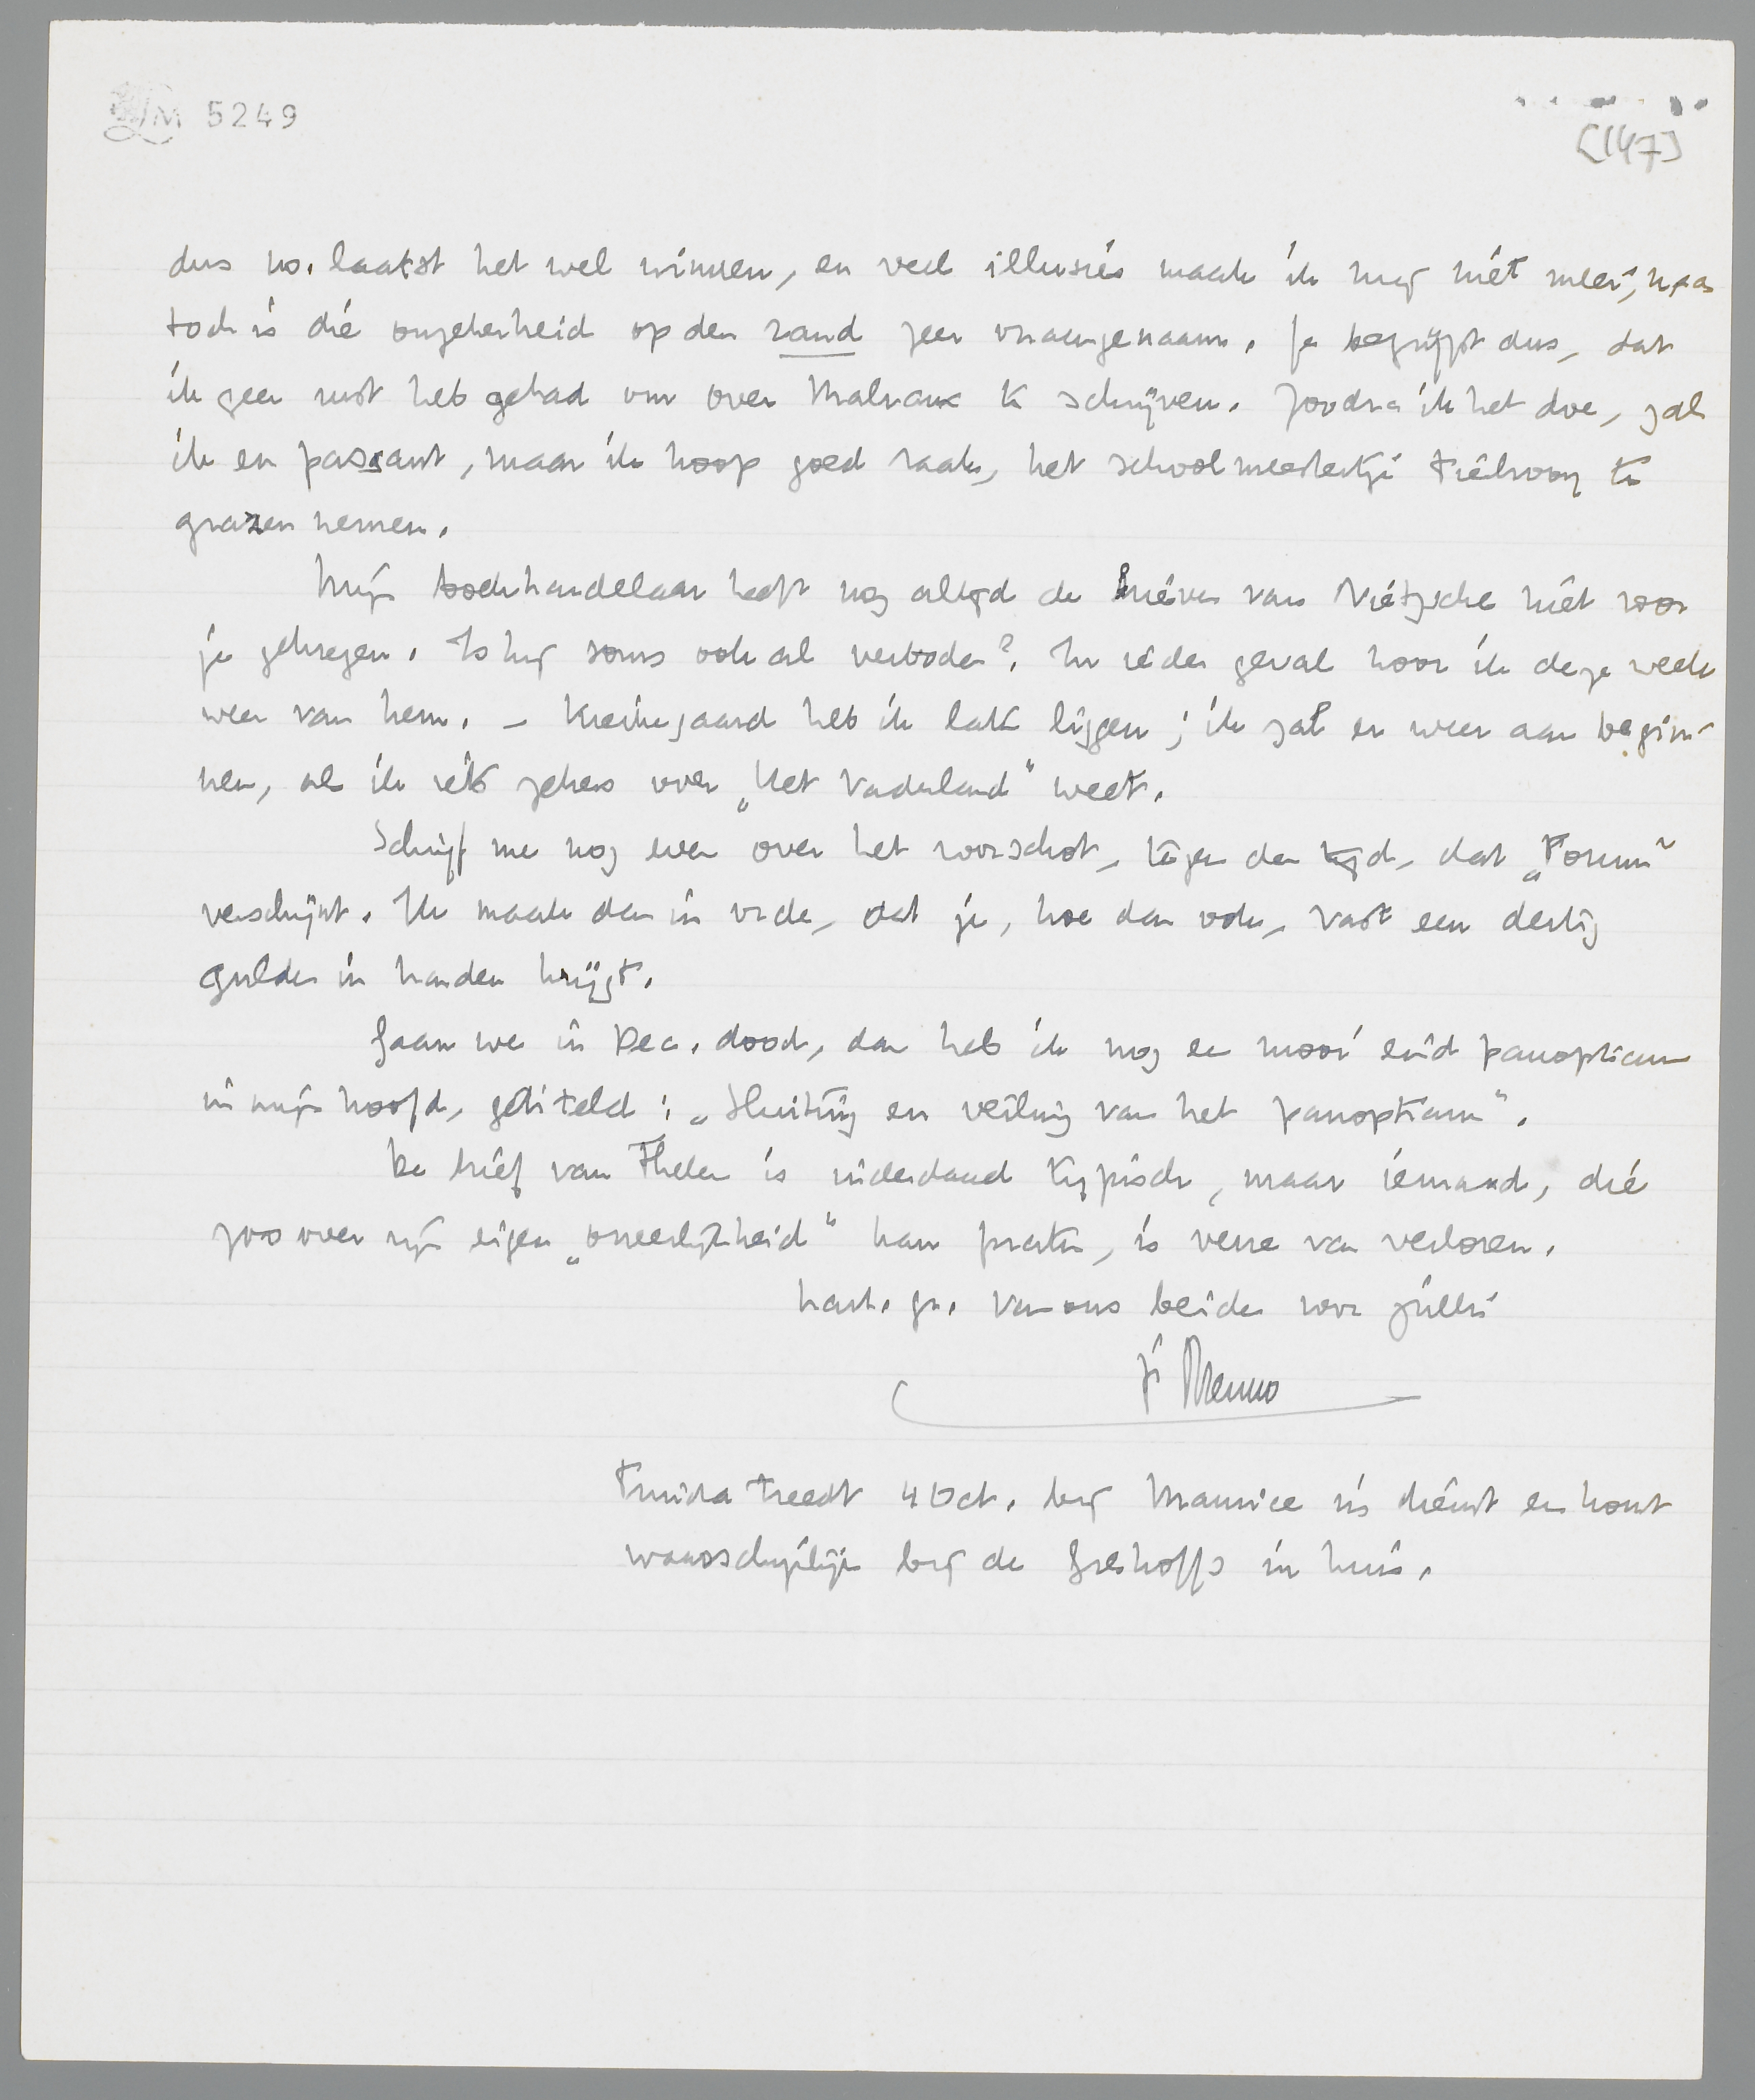 LM 5249
[147]
dus no. laatst het wel winnen, en veel illusies maak ik mij niet meer; maar
toch is die onzekerheid op den rand zeer onaangenaam. Je begrijpt dus, dat
ik geen rust heb gehad om over Malraux te schrijven. Zoodra ik het doe, zal
ik en passant, maar ik hoop goed raak, het schoolmeestertje Tielrooy te
grazen nemen.
Mijn boekhandelaar heeft nog altijd de brieven van Nietzsche niet voor
je gekregen. Is hij soms ook al verboden? In ieder geval hoor ik deze week
weer van hem. – Kierkegaard heb ik laten liggen; ik zal er weer aan begin-
nen, als ik iets zekers over „Het Vaderland" weet.
Schrijf me nog even over het voorschot, tegen den tijd, dat „Forum"
verschijnt. Ik maak dan in orde, dat je, hoe dan ook, vast een dertig
gulden in handen krijgt.
Gaan we in Dec. dood, dan heb ik nog een mooi eind panopticum
in mijn hoofd, getiteld: „Sluiting en veiling van het panopticum".
De brief van Thelen is inderdaad typisch, maar iemand, die
zoo over zijn eigen „oneerlijkheid" kan praten, is verre van verloren.
hart. gr. van ons beiden voor jullie
je Menno
Truida treedt 4 Oct. bij Maurice in dienst en komt
waarschijnlijk bij de Greshoffs in huis.